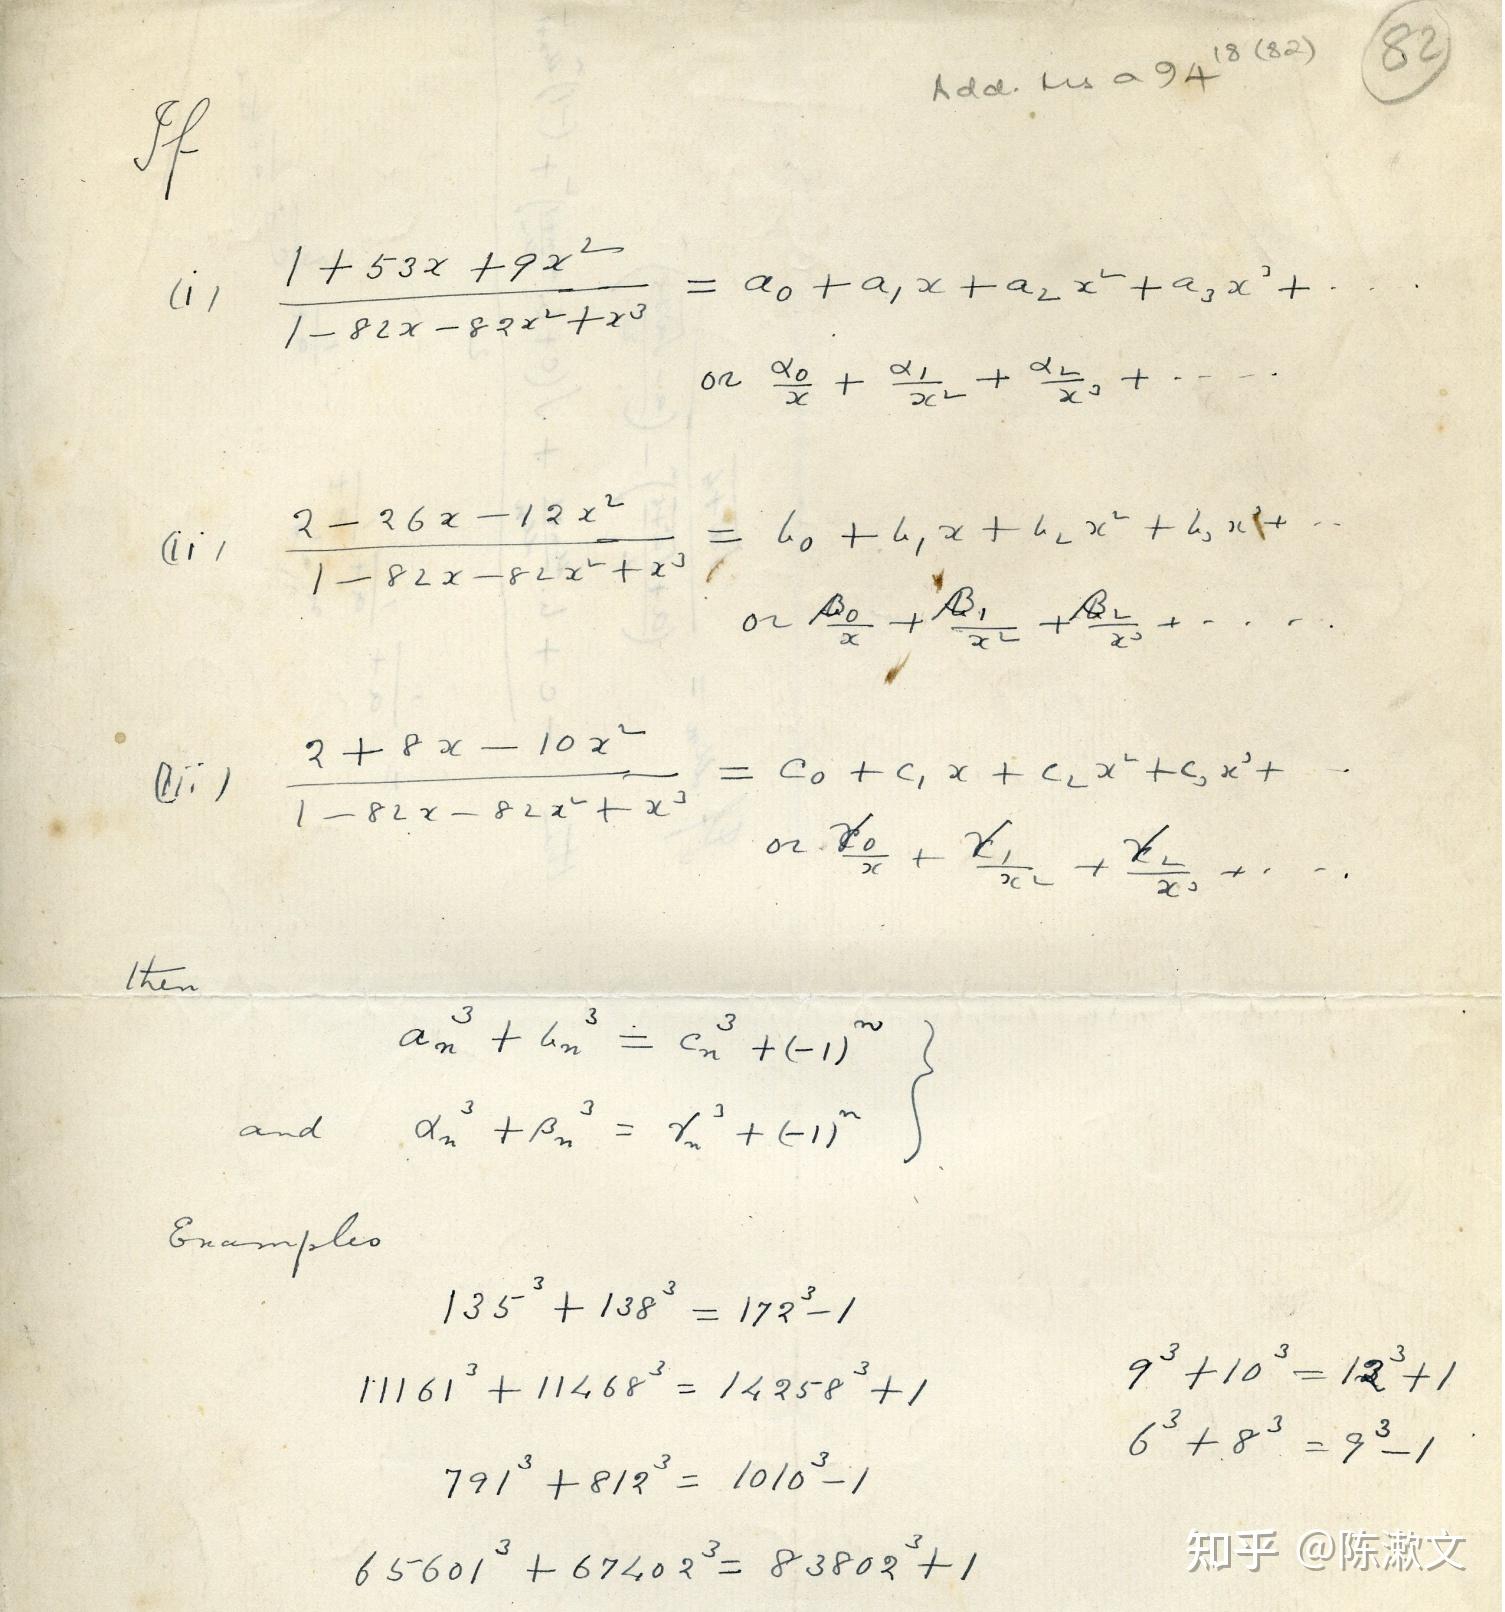 Add. Ms a 94^18 (82) (82)
If
(i) (1 + 53x + 9x^2)/(1 - 82x - 82x^2 + x^3) = a_0 + a_1 x + a_2 x^2 + a_3 x^3 + · · · ·
or α_0/x + α_1/x^2 + α_2/x^3 + · · · · ·
(ii) (2 - 26x - 12x^2)/(1 - 82x - 82x^2 + x^3) = b_0 + b_1 x + b_2 x^2 + b_3 x^3 + · ·
or β_0/x + β_1/x^2 + β_2/x^3 + · · · · ·
(iii) (2 + 8x - 10x^2)/(1 - 82x - 82x^2 + x^3) = c_0 + c_1 x + c_2 x^2 + c_3 x^3 + · ·
or γ_0/x + γ_1/x^2 + γ_2/x^3 + · · · ·
then
a_n^3 + b_n^3 = c_n^3 + (-1)^n }
and α_n^3 + β_n^3 = γ_n^3 + (-1)^n
Examples
135^3 + 138^3 = 172^3 - 1
11161^3 + 11468^3 = 14258^3 + 1
791^3 + 812^3 = 1010^3 - 1
65601^3 + 67402^3 = 83802^3 + 1
9^3 + 10^3 = 12^3 + 1
6^3 + 8^3 = 9^3 - 1
知乎 @陈漱文